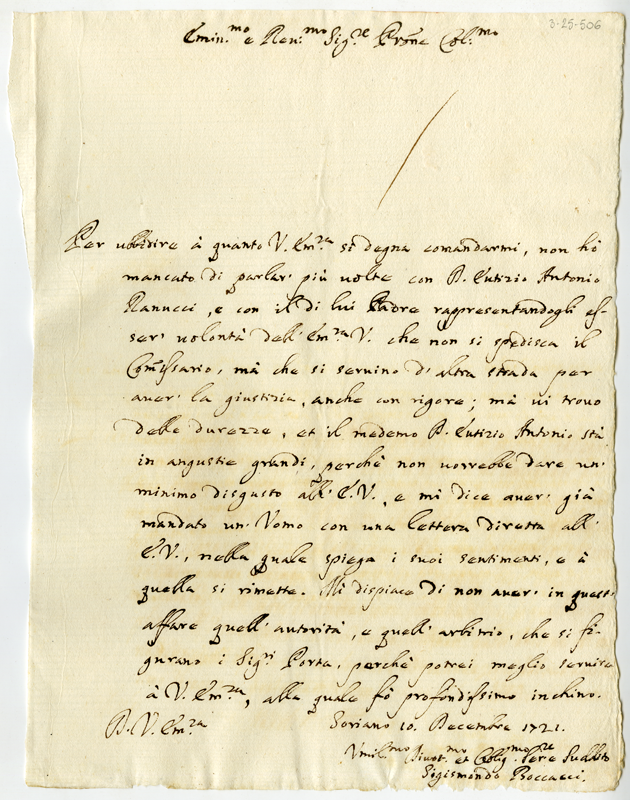 3-25-506
Emin.mo e Rev.mo Sig.re Prone Col.mo
Per ubbidire à quanto V. Em.za si degna comandarmi, non hò
mancato di parlar' più volte con D. Eutizio Antonio
Ranucci, e con il di lui Padre rappresentandogli es-
ser' volontà dell' Em.za V. che non si spedisca il
Comissario, mà che si servino d' altra strada per
aver' la giustizia, anche con rigore; mà vi trovo
delle durezze, et il medemo D. Eutizio Antonio stà
in angustie grandi, perchè non vorrebbe dare un'
minimo disgusto all' E.V., e mi dice aver' già
mandato un' Vomo con una lettera diretta all'
E.V., nella quale spiega i suoi sentimenti, e à
quella si rimette. Mi dispiace di non aver' in quest'
affare quell' autorità, e quell' arbitrio, che si fi-
gurano i Sig.ri Porta, perchè potrei meglio servire
à V. Em.za, alla quale fò profondissimo inchino.
D. V. Em.za Soriano 10. Decembre 1721.
Vmil.mo Divot.mo et Oblig.mo Ser.e Suddito
Sigismondo Boccacci.